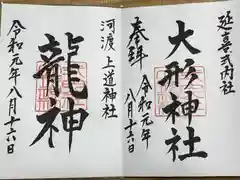 延喜式内社
大形神社
奉拝
令和元年
八月十六日
河渡 上道神社
龍神
令和元年八月十六日